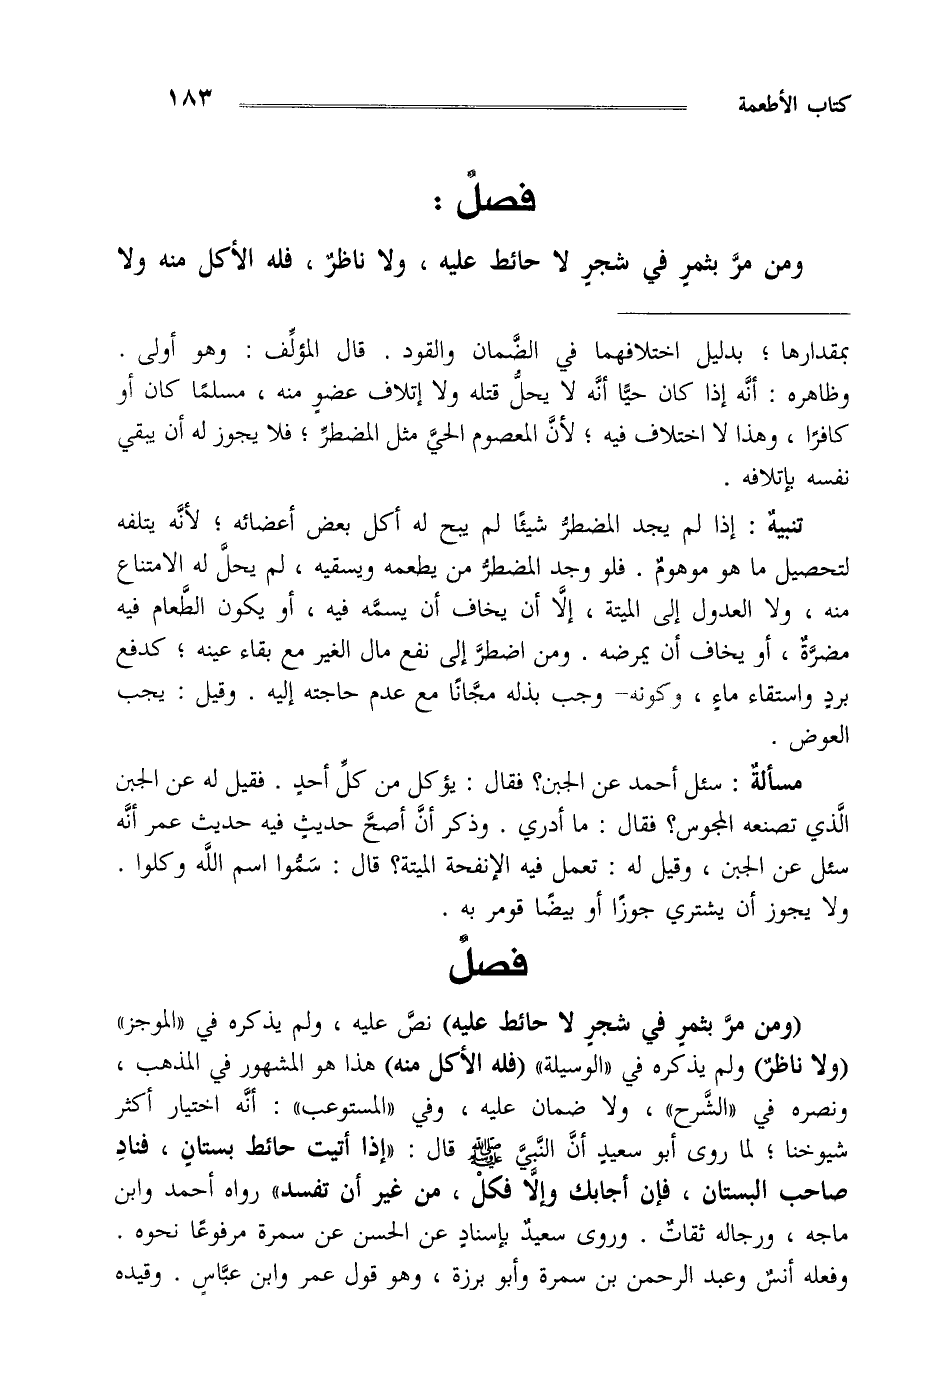 كتاب الأطعمة ١٨٣
فصلٌ :
ومن مرَّ بثمرٍ في شجرٍ لا حائط عليه ، ولا ناظرٌ ، فله الأكل منه ولا
بمقدارها ؛ بدليل اختلافهما في الضَّمان والقود . قال المؤلِّف : وهو أولى .
وظاهره : أنَّه إذا كان حيًّا أنَّه لا يحلُّ قتله ولا إتلاف عضوٍ منه ، مسلمًا كان أو
كافرًا ، وهذا لا اختلاف فيه ؛ لأنَّ المعصوم الحيَّ مثل المضطرِّ ؛ فلا يجوز له أن يبقي
نفسه بإتلافه .
تنبيهٌ : إذا لم يجد المضطرُّ شيئًا لم يبح له أكل بعض أعضائه ؛ لأنَّه يتلفه
لتحصيل ما هو موهومٌ . فلو وجد المضطرُّ من يطعمه ويسقيه ، لم يحلَّ له الامتناع
منه ، ولا العدول إلى الميتة ، إلَّا أن يخاف أن يسمَّه فيه ، أو يكون الطَّعام فيه
مضرَّةٌ ، أو يخاف أن يمرضه . ومن اضطرَّ إلى نفع مال الغير مع بقاء عينه ؛ كدفع
بردٍ واستقاء ماءٍ ، وكونه– وجب بذله مجَّانًا مع عدم حاجته إليه . وقيل : يجب
العوض .
مسألةٌ : سئل أحمد عن الجبن؟ فقال : يؤكل من كلِّ أحدٍ . فقيل له عن الجبن
الَّذي تصنعه المجوس؟ فقال : ما أدري . وذكر أنَّ أصحَّ حديثٍ فيه حديث عمر أنَّه
سئل عن الجبن ، وقيل له : تعمل فيه الإنفحة الميتة؟ قال : سَمُّوا اسم اللَّه وكلوا .
ولا يجوز أن يشتري جوزًا أو بيضًا قومر به .
فصلٌ
(ومن مرَّ بثمرٍ في شجرٍ لا حائط عليه) نصَّ عليه ، ولم يذكره في «الموجز»
(ولا ناظرٌ) ولم يذكره في «الوسيلة» (فله الأكل منه) هذا هو المشهور في المذهب ،
ونصره في «الشَّرح» ، ولا ضمان عليه ، وفي «المستوعب» : أنَّه اختيار أكثر
شيوخنا ؛ لما روى أبو سعيدٍ أنَّ النَّبيَّ ﷺ قال : «إذا أتيت حائط بستانٍ ، فنادِ
صاحب البستان ، فإن أجابك وإلَّا فكلْ ، من غير أن تفسد» رواه أحمد وابن
ماجه ، ورجاله ثقاتٌ . وروى سعيدٌ بإسنادٍ عن الحسن عن سمرة مرفوعًا نحوه .
وفعله أنسٌ وعبد الرحمن بن سمرة وأبو برزة ، وهو قول عمر وابن عبَّاسٍ . وقيده